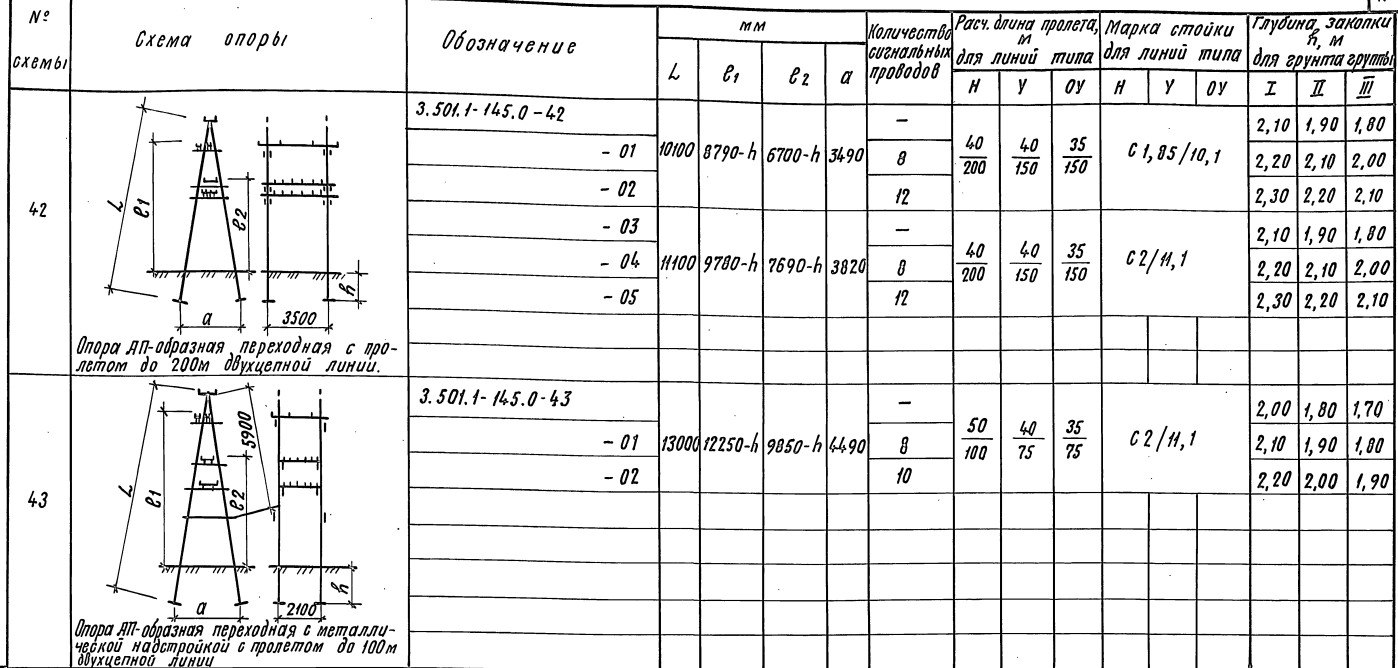 № схемы
Схема опоры
Обозначение
мм
Количество сигнальных проводов
Расч. длина пролета, м для линий типа
Марка стойки для линий типа
Глубина закопки h, м для грунта группы
L ℓ1 ℓ2 а
Н У ОУ Н У ОУ I II III
42
L ℓ1 ℓ2 h
а 3500
Опора АП-образная переходная с про-
летом до 200м двухцепной линии.
3.501.1-145.0-42 — 2,10 1,90 1,80
- 01 10100 8790-h 6700-h 3490 8 40/200 40/150 35/150 С 1,85/10,1 2,20 2,10 2,00
- 02 12 2,30 2,20 2,10
- 03 — 2,10 1,90 1,80
- 04 11100 9780-h 7690-h 3820 8 40/200 40/150 35/150 С2/11,1 2,20 2,10 2,00
- 05 12 2,30 2,20 2,10
43
L ℓ1 5900 ℓ2 h
а 2100
Опора АП-образная переходная с металли-
ческой надстройкой с пролетом до 100м
двухцепной линии
3.501.1-145.0-43 — 2,00 1,80 1,70
- 01 13000 12250-h 9850-h 4490 8 50/100 40/75 35/75 С2/11,1 2,10 1,90 1,80
- 02 10 2,20 2,00 1,90